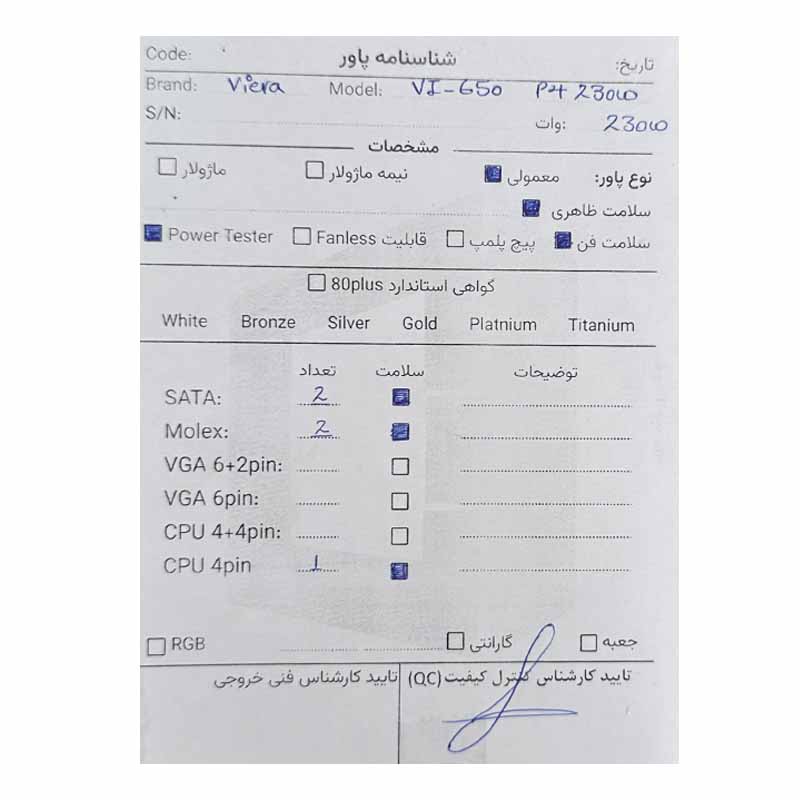 شناسنامه پاور
Code: تاریخ:
Brand: Viera Model: VI-650 P4 230w
S/N: وات: 230w
مشخصات
نوع پاور: معمولی نیمه ماژولار ماژولار
سلامت ظاهری
سلامت فن پیچ پلمپ قابلیت Fanless Power Tester
گواهی استاندارد 80plus
White Bronze Silver Gold Platnium Titanium
تعداد سلامت توضیحات
SATA: 2
Molex: 2
VGA 6+2pin:
VGA 6pin:
CPU 4+4pin:
CPU 4pin 1
جعبه گارانتی RGB
تایید کارشناس کنترل کیفیت (QC) تایید کارشناس فنی خروجی